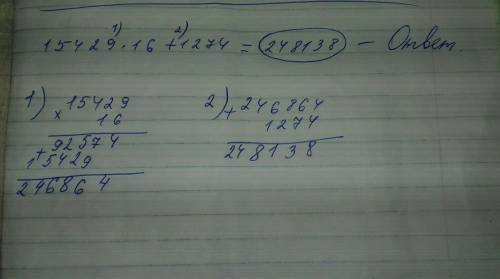 1) 2)
15429 · 16 + 1274 = 248138 — Ответ.
1) 2)
× 15429 + 246864
16 1274
92574 248138
+ 15429
246864